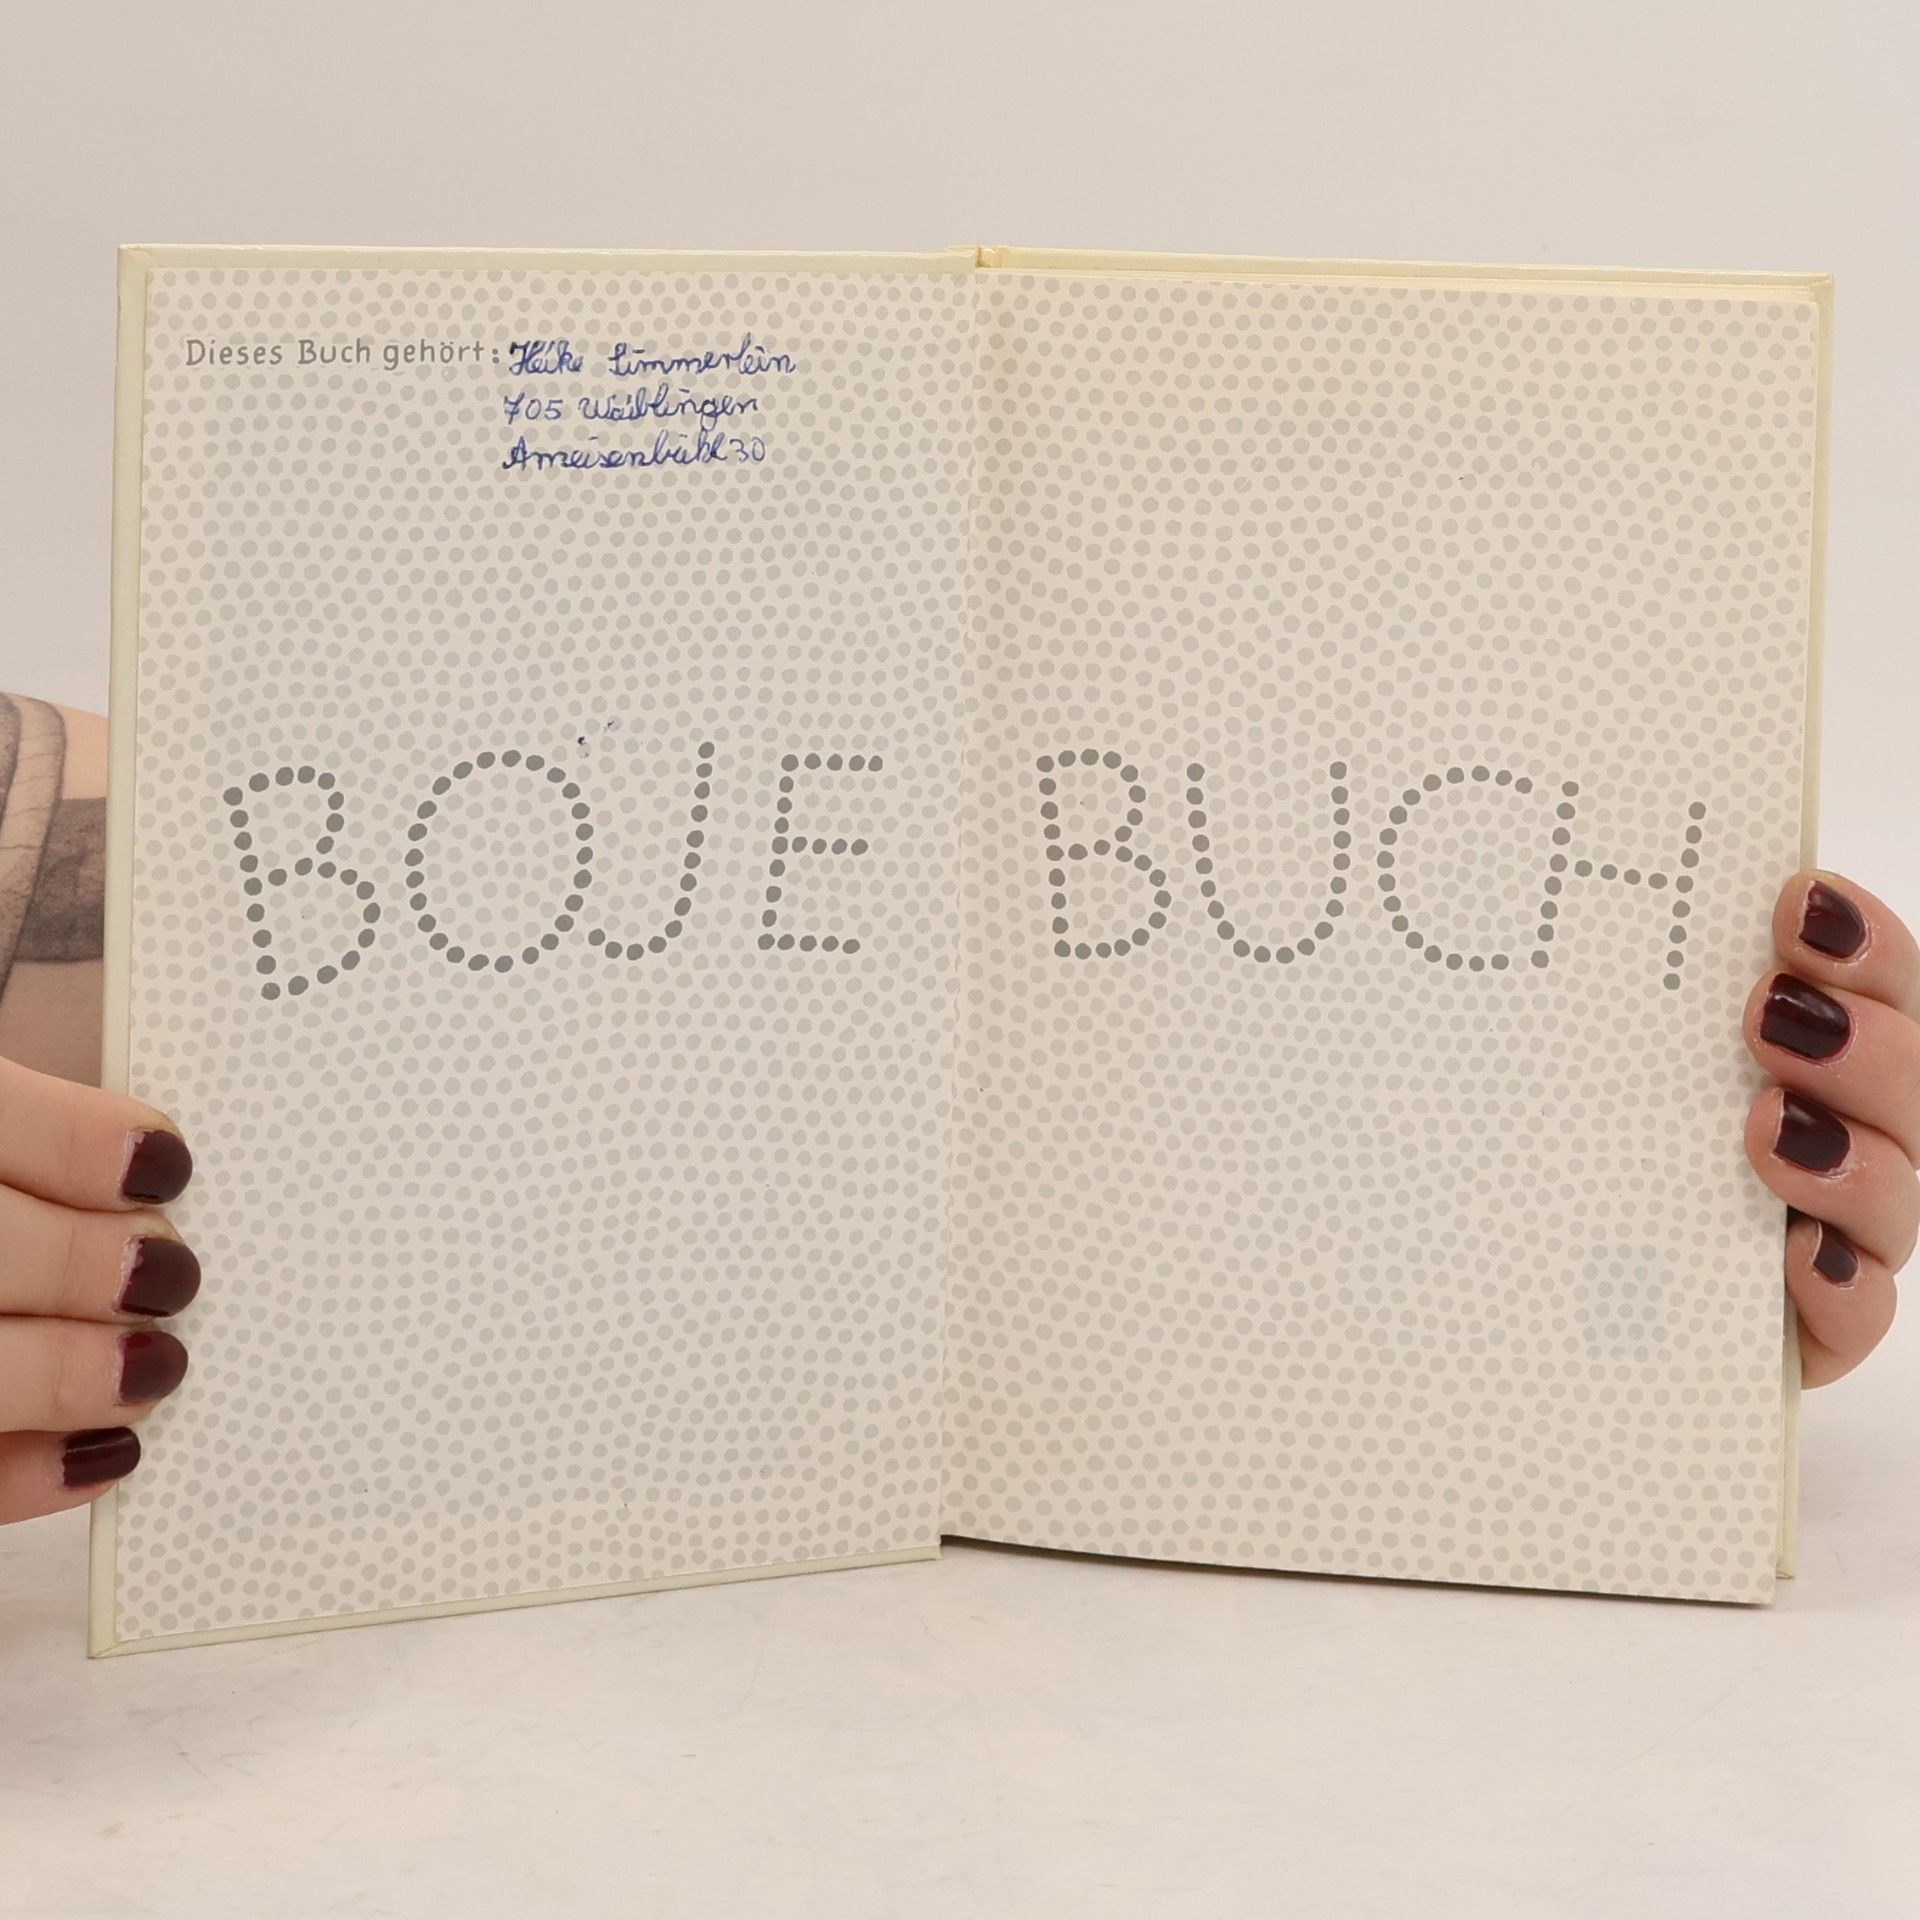 Dieses Buch gehört: Heike Simmerlein
705 Waiblingen
Ameisenbühl 30
BOJE BUCH